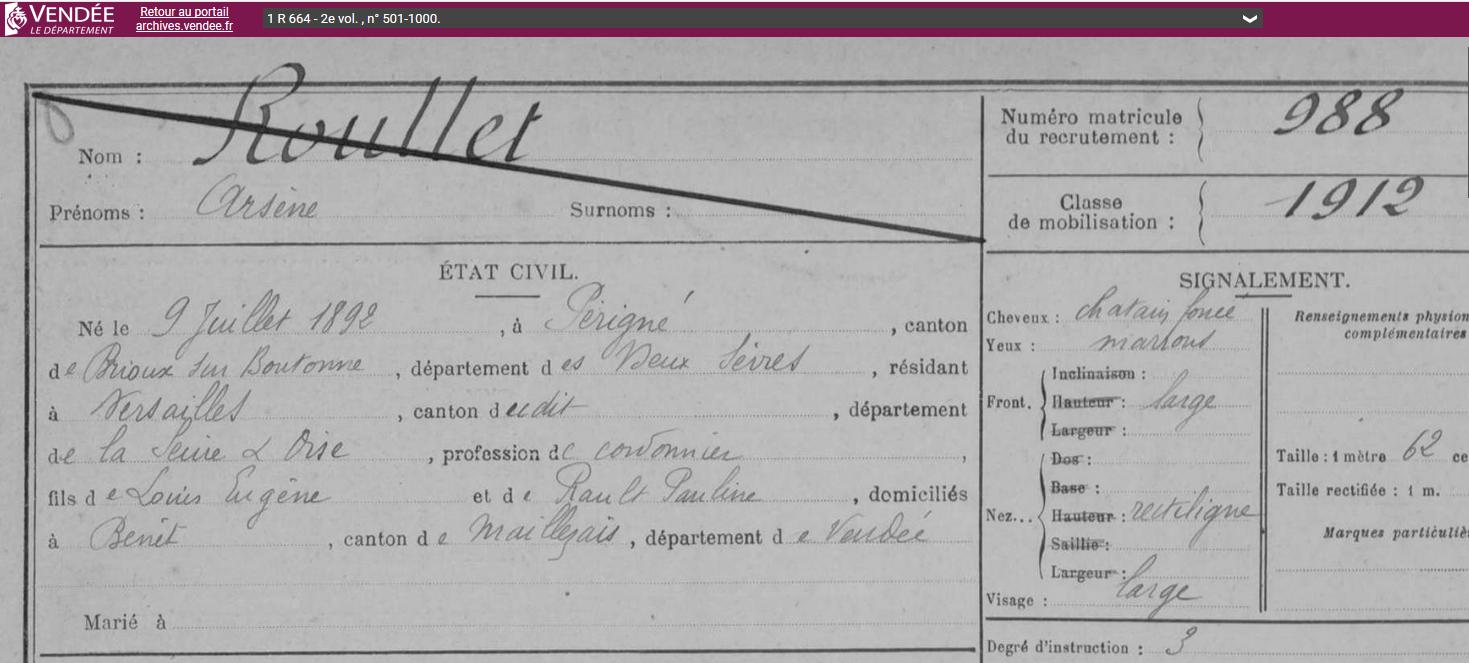 VENDÉE
LE DÉPARTEMENT
Retour au portail
archives.vendee.fr
1 R 664 - 2e vol. , n° 501-1000.
Nom : Roullet
Prénoms : Arsène Surnoms :
Numéro matricule
du recrutement : 988
Classe
de mobilisation : 1912
ÉTAT CIVIL.
Né le 9 Juillet 1892, à Périgné, canton
de Brioux sur Boutonne, département des Deux Sèvres, résidant
à Versailles, canton dudit, département
de la Seine & Oise, profession de cordonnier,
fils de Louis Eugène et de Rault Pauline, domiciliés
à Benêt, canton de Maillezais, département de Vendée
Marié à
SIGNALEMENT.
Cheveux : chatain foncé
Yeux : marrons
Front. Inclinaison :
Hauteur : large
Largeur :
Nez... Dos :
Base :
Hauteur : rectiligne
Saillie :
Largeur :
Visage : large
Renseignements physion
complémentaires
Taille : 1 mètre 62 ce
Taille rectifiée : 1 m.
Marques particuliè
Degré d'instruction : 3